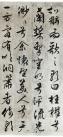 舷而歌之歌曰桂棹
兮蘭槳擊空明兮泝流光
渺兮余懷望美人兮天
一方客有吹洞簫者倚